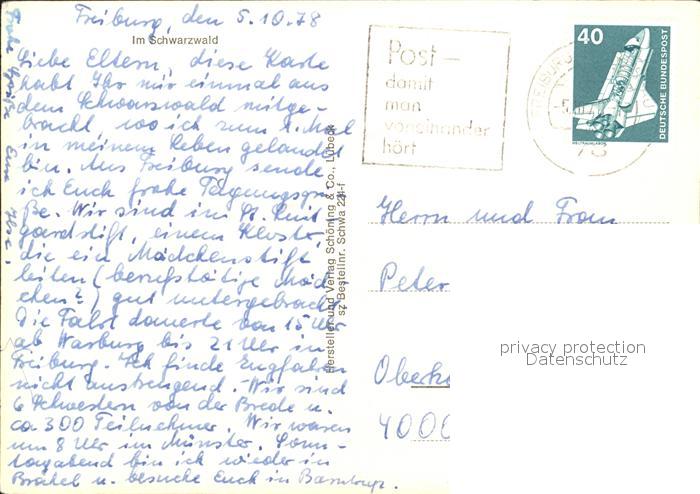 Freiburg, den 5.10.78
Im Schwarzwald
Liebe Eltern, diese Karte
habt Ihr mir einmal aus
dem Schwarzwald mitge-
bracht, wo ich zum 1. Mal
in meinem Leben gelandet
bin. Aus Freiburg sende
ich Euch frohe Tagungsgrü-
ße. Wir sind im St. Luit
gardstift, einem Kloster,
die ein Mädchenstift
leiten (berufstätige Mäd
chen?) gut untergebracht.
Die Fahrt dauerte von 15 Uhr
ab Warburg bis 21 Uhr in
Freiburg. Ich finde Zugfahren
nicht anstrengend. Wir sind
6 Schwestern von der Brede u.
ca 300 Teilnehmer. Wir waren
um 8 Uhr im Münster. Sonn-
tagabend bin ich wieder in
Brakel u. besuche Euch in
Frohe Grüße Eure
Hersteller und Verlag Schöning & Co., Lübeck
sz Bestellnr. Schwa 224-f
Post –
damit
man
voneinander
hört
FREIBURG
40
DEUTSCHE BUNDESPOST
WELTRAUMLABOR
Herrn und Frau
Peter
4000
privacy protection
Datenschutz